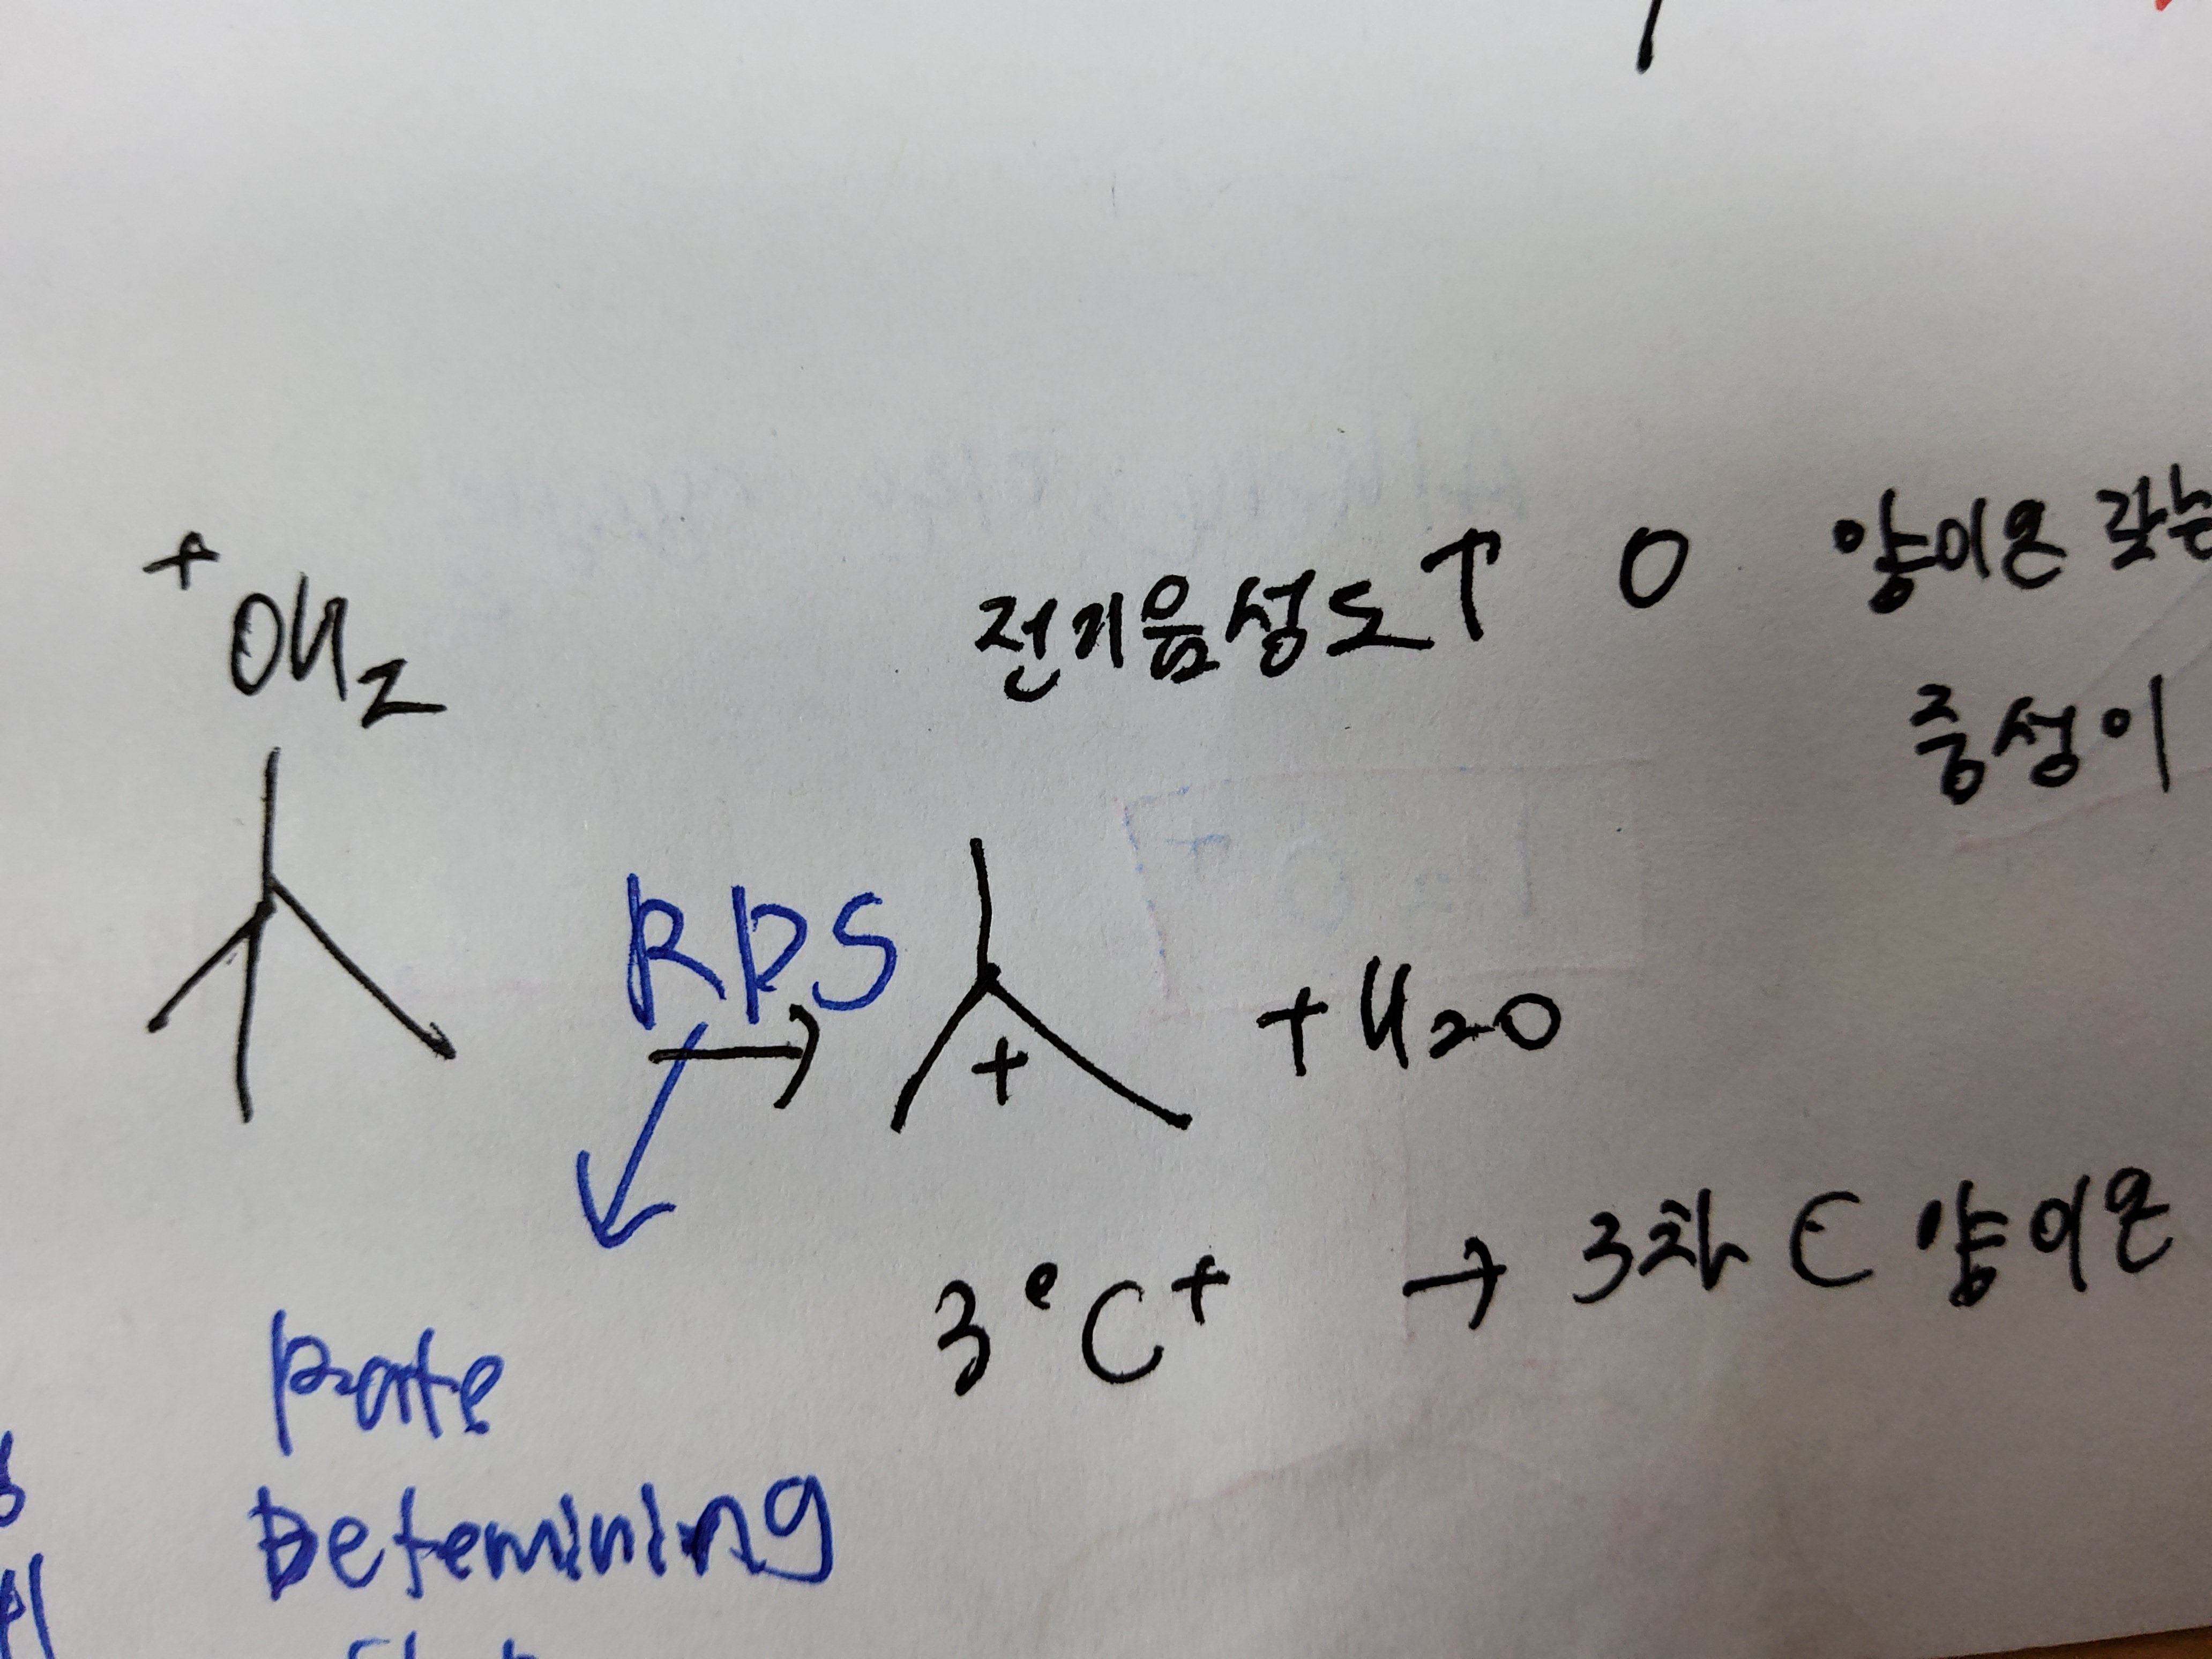 전기음성도↑ O 양이온 갖는
+OH2
중성이
RDS
+
+H2O
3°C+ → 3차 C 양이온
Rate
Detemining